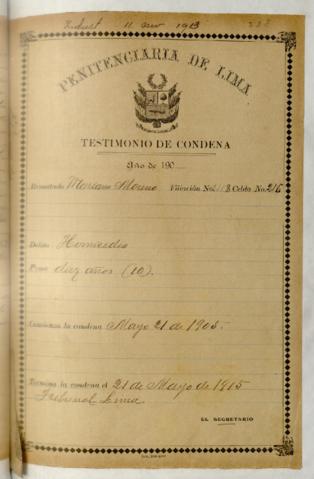 11 nov 1913
PENITENCIARIA DE LIMA
TESTIMONIO DE CONDENA
Año de 190
Rematado Mariano Moreno Filiación No. Celda No. 216
Delito Homicidio
Pena diez años (10).
Comienza la condena Mayo 21 de 1905.
Termina la condena el 21 de Mayo de 1915
Tribunal Lima
EL SECRETARIO